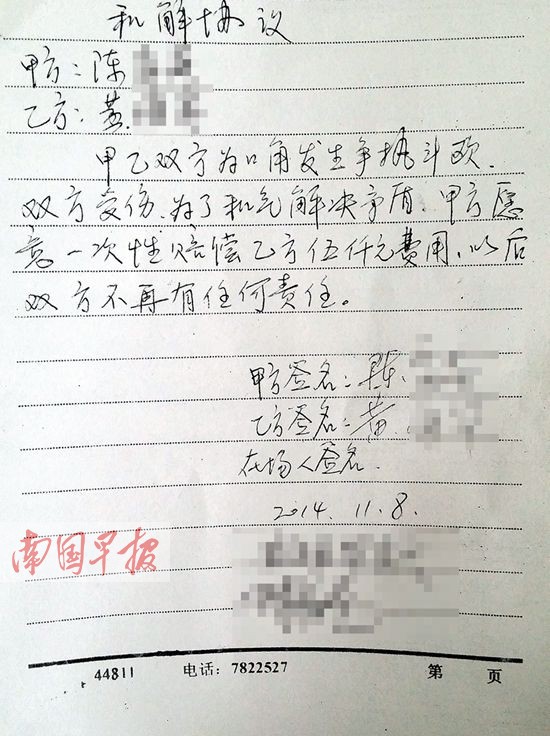 和解协议
甲方：陈
乙方：黄
甲乙双方为口角发生争执斗殴.
双方受伤.为了和气解决矛盾.甲方愿
意一次性赔偿乙方伍仟元费用、以后
双方不再有任何责任。
甲方签名：陈.
乙方签名：黄
在场人签名.
2014.11.8.
南国早报
44811 电话：7822527 第 页